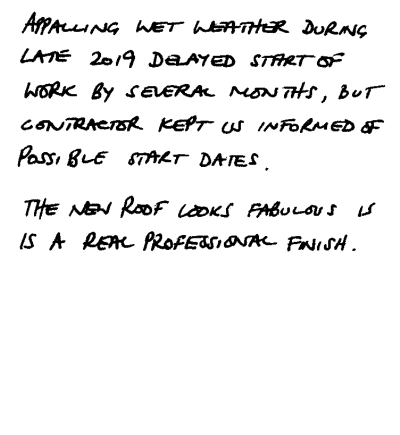 APPALLING WET WEATHER DURING
LATE 2019 DELAYED START OF
WORK BY SEVERAL MONTHS, BUT
CONTRACTOR KEPT US INFORMED OF
POSSIBLE START DATES.
THE NEW ROOF LOOKS FABULOUS IS
IS A REAL PROFESSIONAL FINISH.